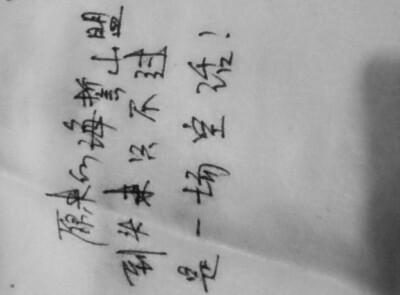 原来的海誓山盟
到头来只不过
是一场空话!